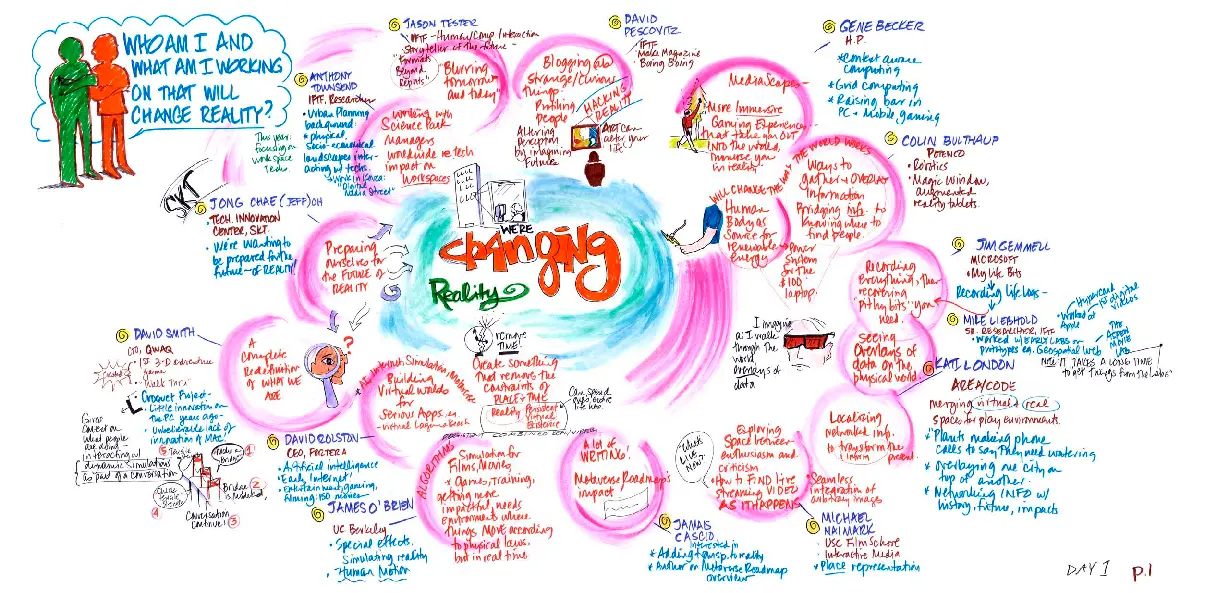 WHO AM I AND
WHAT AM I WORKING
ON THAT WILL
CHANGE REALITY?
JASON TESTER
IFTF - Human/Comp Interaction
Storyteller of the Future -
"Formats
Beyond
Reports"
Blurring
tomorrow
and today"
DAVID
PESCOVITZ
IFTF
Make Magazine
Boing Boing
Blogging
strange/curious
things.
Profiling
people
HACKING
REALITY
Altering
perception
by imagining
Future
Art can
alter your
life
GENE BECKER
H.P.
Context aware
computing
Grid computing
Raising bar in
PC + Mobile gaming
MediaScapes
More Immersive
Gaming Experiences
that take you OUT
INTO the world,
immerse you
in reality"
COLIN BULTHAUP
POTENCO
Robotics
Magic Window,
augmented
reality tablets.
WILL CHANGE THE WAY THE WORLD WORKS
Ways to
gather + OVERLAY
Information
Bridging info. to
Knowing where to
find people.
Human
Body as
Source for
renewable
energy
Power
System
for the
$100
laptop.
ANTHONY
TOWNSEND
IFTF, Researcher
Urban Planning
background:
physical,
socio-economical
landscapes inter-
acting w/ techs.
Work in Korea:
"Digital
Media Street"
This year:
focusing on
workspace
Techs.
Working with
Science Park
Managers
worldwide re tech
impact on
Workspaces
SKT
JONG CHAE (JEFF) OH
TECH. INNOVATION
CENTER, SKT.
We're wanting to
be prepared for the
future - of REALITY!
Preparing
ourselves for
the FUTURE of
REALITY
WE'RE
Changing
Reality
JIM GEMMELL
MICROSOFT
My Life Bits
Recording life logs -
Recording
Everything, then
recovering
pithy bits you
need.
MIKE LIEBHOLD
SR. RESEARCHER, IFTF
Worked w/ EARLY LABS on
prototypes eg. Geospatial Web
Hypercard
1st digital
videos
Worked at
Apple
THE
ASPEN
MOVIE
MAP
NOTE: IT TAKES A LONG TIME
to get things from the Labs"
seeing
overlays of
data on the
physical world.
I imagine
as I walk
through the
world
overlays of
data
KATI LONDON
AREA/CODE
merging virtual + real
spaces for play environments.
Plants making phone
calls to say they need watering
Overlaying one city on
top of another.
Networking INFO w/
history, future, impacts
Localizing
networked info.
to transform the
present.
DAVID SMITH
CTO, QWAQ
Created
1st 3-D adventure
game
Croquet Project -
Little innovation on
the PC years ago -
Unbelievable lack of
innovation @ MAC!
A
complete
Redefinition
of WHAT WE
ARE
?
Gives
context on
what people
are doing -
interacting w/
dynamic simulations
as part of a conversation
1
2
3
4
5
Conversation
continues!
DAVID ROLSTON
CEO, FORTERRA
Artificial intelligence
Early Internet
Entertainment, gaming,
filming: 150 movies
Building
Virtual worlds
for
Serious Apps. e.g.
- virtual Lagrange
CHANGE
TIME
Create something
that removes the
constraints of
PLACE + TIME
Reality
Persistent
Virtual
Existence
JAMES O'BRIEN
UC Berkeley
Special effects.
Simulating reality
Human Motion
ALGORITHMS
Simulation for
Films, Movies,
Games, training,
getting more
impactful, needs
environments where
things MOVE according
to physical laws.
but in real time
A lot of
WRITING!
Metaverse Roadmap's
impact
JAMAIS
CASCIO
interested in
Adding transp. to reality
Author on Metaverse Roadmap
overview
What's
LIVE
NOW?
Exploring
Space between
enthusiasm and
criticism
How to FIND live
streaming VIDEO
AS IT HAPPENS
Seamless
integration of
arbitrary images
MICHAEL
NAIMARK
USC Film School
Interactive Media
Place representation
DAY 1
p.1